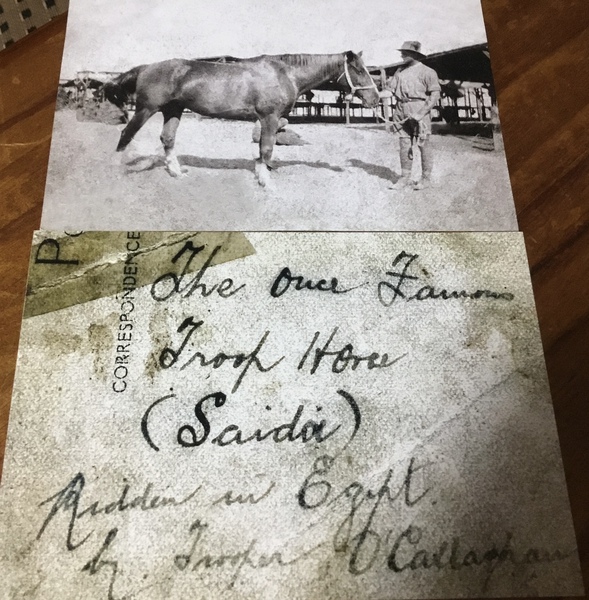 Po
CORRESPONDENCE
The once Famous
Troop Horse
(Saida)
Ridden in Egypt.
by Trooper O'Callaghan